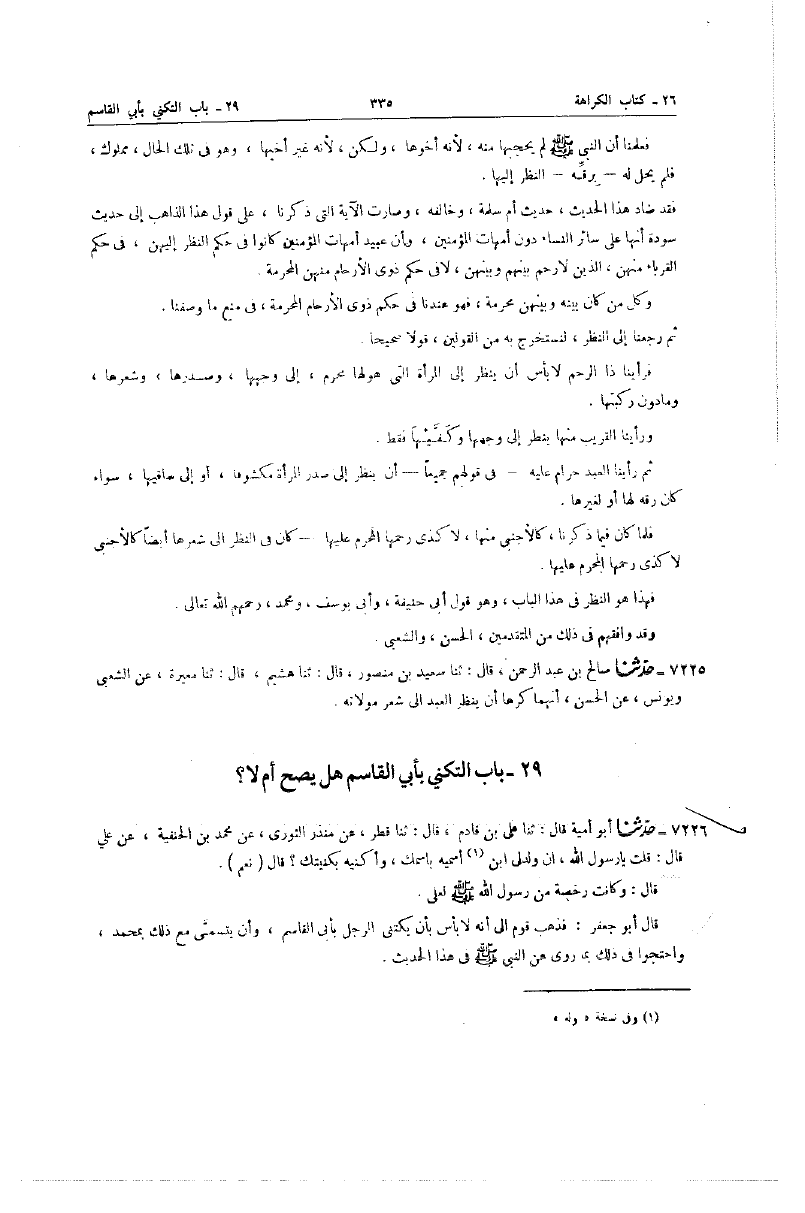 ٢٦ ـ كتاب الكراهة ٣٣٥ ٢٩ ـ باب التكني بأبي القاسم
فعلمنا أن النبي ﷺ لم يحجبها منه ، لأنه أخوها ، ولكن ، لأنه غير أخيها ، وهو فى تلك الحال ، مملوك ،
فلم يحل له — برقِّه — النظر إليها .
فقد ضاد هذا الحديث ، حديث أم سلمة ، وخالفه ، وصارت الآية التى ذكرنا ، على قول هذا الذاهب إلى حديث
سودة أنها على سائر النساء دون أمهات المؤمنين ، وأن عبيد أمهات المؤمنين كانوا فى حكم النظر إليهن ، فى حكم
القرباء منهن ، الذين لا رحم بينهم وبينهن ، لا فى حكم ذوى الأرحام منهن المحرمة .
وكل من كان بينه وبينهن محرمة ، فهو عندنا فى حكم ذوى الأرحام المحرمة ، فى منع ما وصفنا .
ثم رجعنا إلى النظر ، لنستخرج به من القولين ، قولا صحيحا .
فرأينا ذا الرحم لا بأس أن ينظر إلى المرأة التى هو لها محرم ، إلى وجهها ، وصدرها ، وشعرها ،
وما دون ركبتها .
ورأينا القريب منها ينظر إلى وجهها وكَفَّيْهَا فقط .
ثم رأينا العبد حرام عليه — فى قولهم جميعاً — أن ينظر إلى صدر المرأة مكشوفا ، أو إلى ساقيها ، سواء
كان رقه لها أو لغيرها .
فلما كان فيما ذكرنا ، كالأجنبى منها ، لا كذى رحمها المحرم عليها — كان فى النظر الى شعرها أيضاً كالأجنبى
لا كذى رحمها المحرم عليها .
فهذا هو النظر فى هذا الباب ، وهو قول أبى حنيفة ، وأبى يوسف ، ومحمد ، رحمهم الله تعالى .
وقد وافقهم فى ذلك من المتقدمين ، الحسن ، والشعبى .
٧٢٢٥ ـ حَدَّثَنَا صالح بن عبد الرحمن ، قال : ثنا سعيد بن منصور ، قال : ثنا هشيم ، قال : ثنا مغيرة ، عن الشعبى
ويونس ، عن الحسن ، أنهما كرها أن ينظر العبد الى شعر مولاته .
٢٩ ـ باب التكني بأبي القاسم هل يصح أم لا ؟
٧٢٢٦ ـ حَدَّثَنَا أبو أمية قال : ثنا على بن قادم ، قال : ثنا فطر ، عن منذر الثورى ، عن محمد بن الحنفية ، عن علي
قال : قلت يا رسول الله ، ان ولدلى ابن (١) أسميه باسمك ، وأكنيه بكنيتك ؟ قال ( نعم ) .
قال : وكانت رخصة من رسول الله ﷺ لعلى .
قال أبو جعفر : فذهب قوم الى أنه لا بأس بأن يكتنى الرجل بأبى القاسم ، وأن يتسمَّى مع ذلك بمحمد ،
واحتجوا فى ذلك بما روى عن النبي ﷺ فى هذا الحديث .
(١) وفى نسخة « وله »